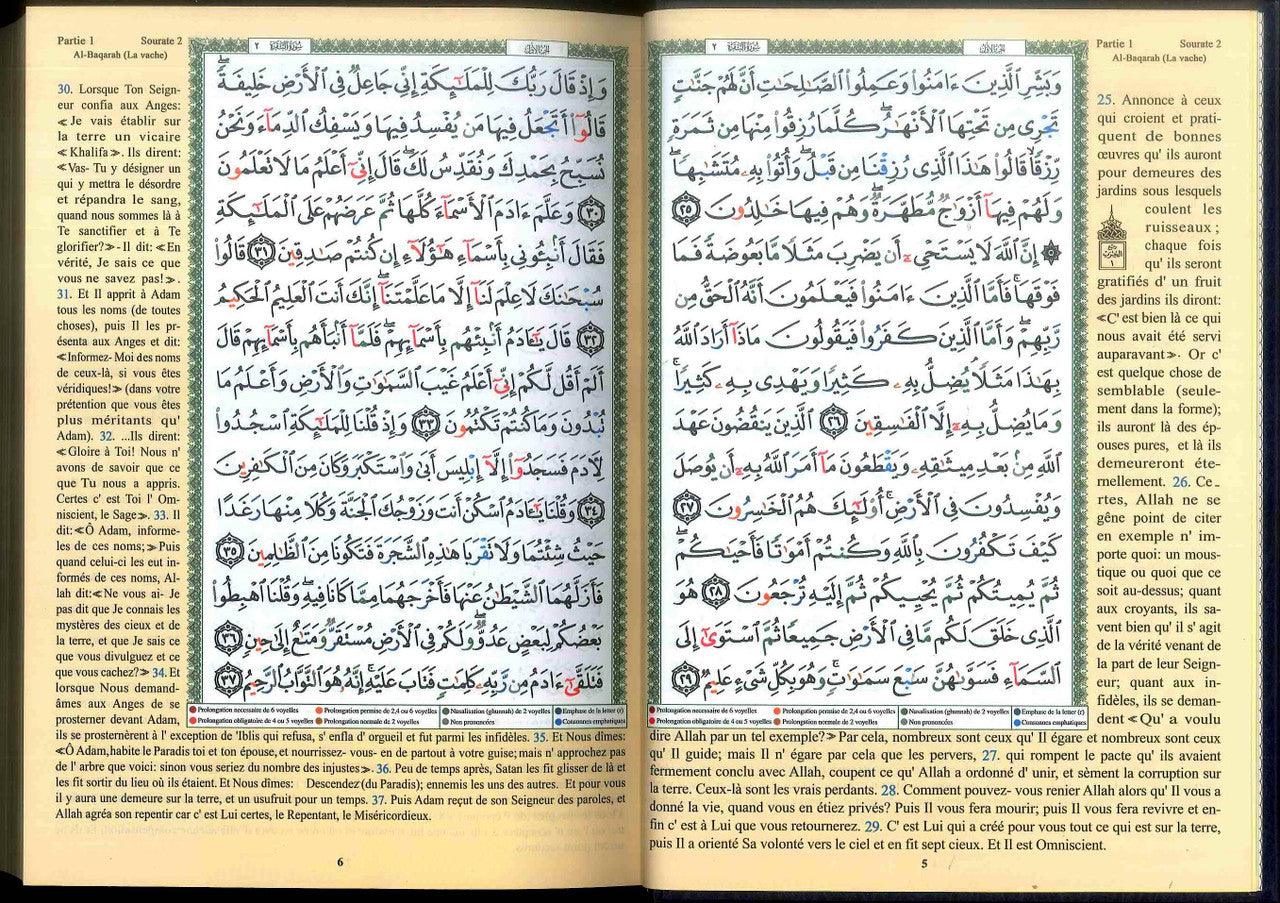 Partie 1 Sourate 2
Al-Baqarah (La vache)
٢ سورة البقرة
الجزء الأول
وَبَشِّرِ ٱلَّذِينَ ءَامَنُوا۟ وَعَمِلُوا۟ ٱلصَّٰلِحَٰتِ أَنَّ لَهُمْ جَنَّٰتٍ
تَجْرِى مِن تَحْتِهَا ٱلْأَنْهَٰرُ ۖ كُلَّمَا رُزِقُوا۟ مِنْهَا مِن ثَمَرَةٍ
رِّزْقًا ۙ قَالُوا۟ هَٰذَا ٱلَّذِى رُزِقْنَا مِن قَبْلُ ۖ وَأُتُوا۟ بِهِۦ مُتَشَٰبِهًا ۖ
وَلَهُمْ فِيهَآ أَزْوَٰجٌ مُّطَهَّرَةٌ ۖ وَهُمْ فِيهَا خَٰلِدُونَ ٢٥
۞ إِنَّ ٱللَّهَ لَا يَسْتَحْىِۦٓ أَن يَضْرِبَ مَثَلًا مَّا بَعُوضَةً فَمَا
فَوْقَهَا ۚ فَأَمَّا ٱلَّذِينَ ءَامَنُوا۟ فَيَعْلَمُونَ أَنَّهُ ٱلْحَقُّ مِن
رَّبِّهِمْ ۖ وَأَمَّا ٱلَّذِينَ كَفَرُوا۟ فَيَقُولُونَ مَاذَآ أَرَادَ ٱللَّهُ
بِهَٰذَا مَثَلًا ۘ يُضِلُّ بِهِۦ كَثِيرًا وَيَهْدِى بِهِۦ كَثِيرًا ۚ
وَمَا يُضِلُّ بِهِۦٓ إِلَّا ٱلْفَٰسِقِينَ ٢٦ ٱلَّذِينَ يَنقُضُونَ عَهْدَ
ٱللَّهِ مِنۢ بَعْدِ مِيثَٰقِهِۦ وَيَقْطَعُونَ مَآ أَمَرَ ٱللَّهُ بِهِۦٓ أَن يُوصَلَ
وَيُفْسِدُونَ فِى ٱلْأَرْضِ ۚ أُو۟لَٰٓئِكَ هُمُ ٱلْخَٰسِرُونَ ٢٧
كَيْفَ تَكْفُرُونَ بِٱللَّهِ وَكُنتُمْ أَمْوَٰتًا فَأَحْيَٰكُمْ ۖ
ثُمَّ يُمِيتُكُمْ ثُمَّ يُحْيِيكُمْ ثُمَّ إِلَيْهِ تُرْجَعُونَ ٢٨ هُوَ
ٱلَّذِى خَلَقَ لَكُم مَّا فِى ٱلْأَرْضِ جَمِيعًا ثُمَّ ٱسْتَوَىٰٓ إِلَى
ٱلسَّمَآءِ فَسَوَّىٰهُنَّ سَبْعَ سَمَٰوَٰتٍ ۚ وَهُوَ بِكُلِّ شَىْءٍ عَلِيمٌ ٢٩
Prolongation nécessaire de 6 voyelles Prolongation permise de 2,4 ou 6 voyelles Nasalisation (ghunnah) de 2 voyelles Emphase de la lettre (r)
Prolongation obligatoire de 4 ou 5 voyelles Prolongation normale de 2 voyelles Non prononcées Consonnes emphatiques
25. Annonce à ceux
qui croient et prati-
quent de bonnes
œuvres qu' ils auront
pour demeures des
jardins sous lesquels
coulent les
ruisseaux ;
chaque fois
qu' ils seront
gratifiés d' un fruit
des jardins ils diront:
≪C' est bien là ce qui
nous avait été servi
auparavant≫. Or c'
est quelque chose de
semblable (seule-
ment dans la forme);
ils auront là des ép-
ouses pures, et là ils
demeureront éte-
rnellement. 26. Ce-
rtes, Allah ne se
gêne point de citer
en exemple n' im-
porte quoi: un mous-
tique ou quoi que ce
soit au-dessus; quant
aux croyants, ils sa-
vent bien qu' il s' agit
de la vérité venant de
la part de leur Seign-
eur; quant aux in-
fidèles, ils se deman-
dent ≪Qu' a voulu
dire Allah par un tel exemple?≫ Par cela, nombreux sont ceux qu' Il égare et nombreux sont ceux
qu' Il guide; mais Il n' égare par cela que les pervers, 27. qui rompent le pacte qu' ils avaient
fermement conclu avec Allah, coupent ce qu' Allah a ordonné d' unir, et sèment la corruption sur
la terre. Ceux-là sont les vrais perdants. 28. Comment pouvez- vous renier Allah alors qu' Il vous a
donné la vie, quand vous en étiez privés? Puis Il vous fera mourir; puis Il vous fera revivre et en-
fin c' est à Lui que vous retournerez. 29. C' est Lui qui a créé pour vous tout ce qui est sur la terre,
puis Il a orienté Sa volonté vers le ciel et en fit sept cieux. Et Il est Omniscient.
5
Partie 1 Sourate 2
Al-Baqarah (La vache)
٢ سورة البقرة
الجزء الأول
وَإِذْ قَالَ رَبُّكَ لِلْمَلَٰٓئِكَةِ إِنِّى جَاعِلٌ فِى ٱلْأَرْضِ خَلِيفَةً ۖ
قَالُوٓا۟ أَتَجْعَلُ فِيهَا مَن يُفْسِدُ فِيهَا وَيَسْفِكُ ٱلدِّمَآءَ وَنَحْنُ
نُسَبِّحُ بِحَمْدِكَ وَنُقَدِّسُ لَكَ ۖ قَالَ إِنِّىٓ أَعْلَمُ مَا لَا تَعْلَمُونَ
٣٠ وَعَلَّمَ ءَادَمَ ٱلْأَسْمَآءَ كُلَّهَا ثُمَّ عَرَضَهُمْ عَلَى ٱلْمَلَٰٓئِكَةِ
فَقَالَ أَنۢبِـُٔونِى بِأَسْمَآءِ هَٰٓؤُلَآءِ إِن كُنتُمْ صَٰدِقِينَ ٣١ قَالُوا۟
سُبْحَٰنَكَ لَا عِلْمَ لَنَآ إِلَّا مَا عَلَّمْتَنَآ ۖ إِنَّكَ أَنتَ ٱلْعَلِيمُ ٱلْحَكِيمُ
٣٢ قَالَ يَٰٓـَٔادَمُ أَنۢبِئْهُم بِأَسْمَآئِهِمْ ۖ فَلَمَّآ أَنۢبَأَهُم بِأَسْمَآئِهِمْ قَالَ
أَلَمْ أَقُل لَّكُمْ إِنِّىٓ أَعْلَمُ غَيْبَ ٱلسَّمَٰوَٰتِ وَٱلْأَرْضِ وَأَعْلَمُ مَا
تُبْدُونَ وَمَا كُنتُمْ تَكْتُمُونَ ٣٣ وَإِذْ قُلْنَا لِلْمَلَٰٓئِكَةِ ٱسْجُدُوا۟
لِـَٔادَمَ فَسَجَدُوٓا۟ إِلَّآ إِبْلِيسَ أَبَىٰ وَٱسْتَكْبَرَ وَكَانَ مِنَ ٱلْكَٰفِرِينَ
٣٤ وَقُلْنَا يَٰٓـَٔادَمُ ٱسْكُنْ أَنتَ وَزَوْجُكَ ٱلْجَنَّةَ وَكُلَا مِنْهَا رَغَدًا
حَيْثُ شِئْتُمَا وَلَا تَقْرَبَا هَٰذِهِ ٱلشَّجَرَةَ فَتَكُونَا مِنَ ٱلظَّٰلِمِينَ ٣٥
فَأَزَلَّهُمَا ٱلشَّيْطَٰنُ عَنْهَا فَأَخْرَجَهُمَا مِمَّا كَانَا فِيهِ ۖ وَقُلْنَا ٱهْبِطُوا۟
بَعْضُكُمْ لِبَعْضٍ عَدُوٌّ ۖ وَلَكُمْ فِى ٱلْأَرْضِ مُسْتَقَرٌّ وَمَتَٰعٌ إِلَىٰ حِينٍ ٣٦
فَتَلَقَّىٰٓ ءَادَمُ مِن رَّبِّهِۦ كَلِمَٰتٍ فَتَابَ عَلَيْهِ ۚ إِنَّهُۥ هُوَ ٱلتَّوَّابُ ٱلرَّحِيمُ ٣٧
Prolongation nécessaire de 6 voyelles Prolongation permise de 2,4 ou 6 voyelles Nasalisation (ghunnah) de 2 voyelles Emphase de la lettre (r)
Prolongation obligatoire de 4 ou 5 voyelles Prolongation normale de 2 voyelles Non prononcées Consonnes emphatiques
30. Lorsque Ton Seign-
eur confia aux Anges:
≪Je vais établir sur
la terre un vicaire
≪Khalifa≫. Ils dirent:
≪Vas- Tu y désigner un
qui y mettra le désordre
et répandra le sang,
quand nous sommes là à
Te sanctifier et à Te
glorifier?≫-Il dit: ≪En
vérité, Je sais ce que
vous ne savez pas!≫.
31. Et Il apprit à Adam
tous les noms (de toutes
choses), puis Il les pr-
ésenta aux Anges et dit:
≪Informez- Moi des noms
de ceux-là, si vous êtes
véridiques!≫ (dans votre
prétention que vous êtes
plus méritants qu'
Adam). 32. ...Ils dirent:
≪Gloire à Toi! Nous n'
avons de savoir que ce
que Tu nous a appris.
Certes c' est Toi l' Om-
niscient, le Sage≫. 33. Il
dit:≪Ô Adam, informe-
les de ces noms;≫Puis
quand celui-ci les eut in-
formés de ces noms, Al-
lah dit:≪Ne vous ai- Je
pas dit que Je connais les
mystères des cieux et de
la terre, et que Je sais ce
que vous divulguez et ce
que vous cachez?≫ 34. Et
lorsque Nous demand-
âmes aux Anges de se
prosterner devant Adam,
ils se prosternèrent à l' exception de 'Iblis qui refusa, s' enfla d' orgueil et fut parmi les infidèles. 35. Et Nous dîmes:
≪Ô Adam,habite le Paradis toi et ton épouse,et nourrissez- vous- en de partout à votre guise; mais n' approchez pas
de l' arbre que voici: sinon vous seriez du nombre des injustes≫. 36. Peu de temps après, Satan les fit glisser de là et
les fit sortir du lieu où ils étaient. Et Nous dîmes: Descendez(du Paradis); ennemis les uns des autres. Et pour vous
il y aura une demeure sur la terre, et un usufruit pour un temps. 37. Puis Adam reçut de son Seigneur des paroles, et
Allah agréa son repentir car c' est Lui certes, le Repentant, le Miséricordieux.
6